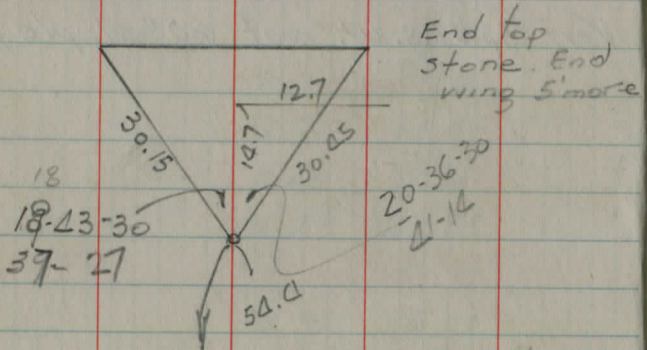 End top
stone. End
wing 5' more
12.7
30.15
14.7
30.45
18
18-43-30
39-27
20-36-30
41-14
54.4